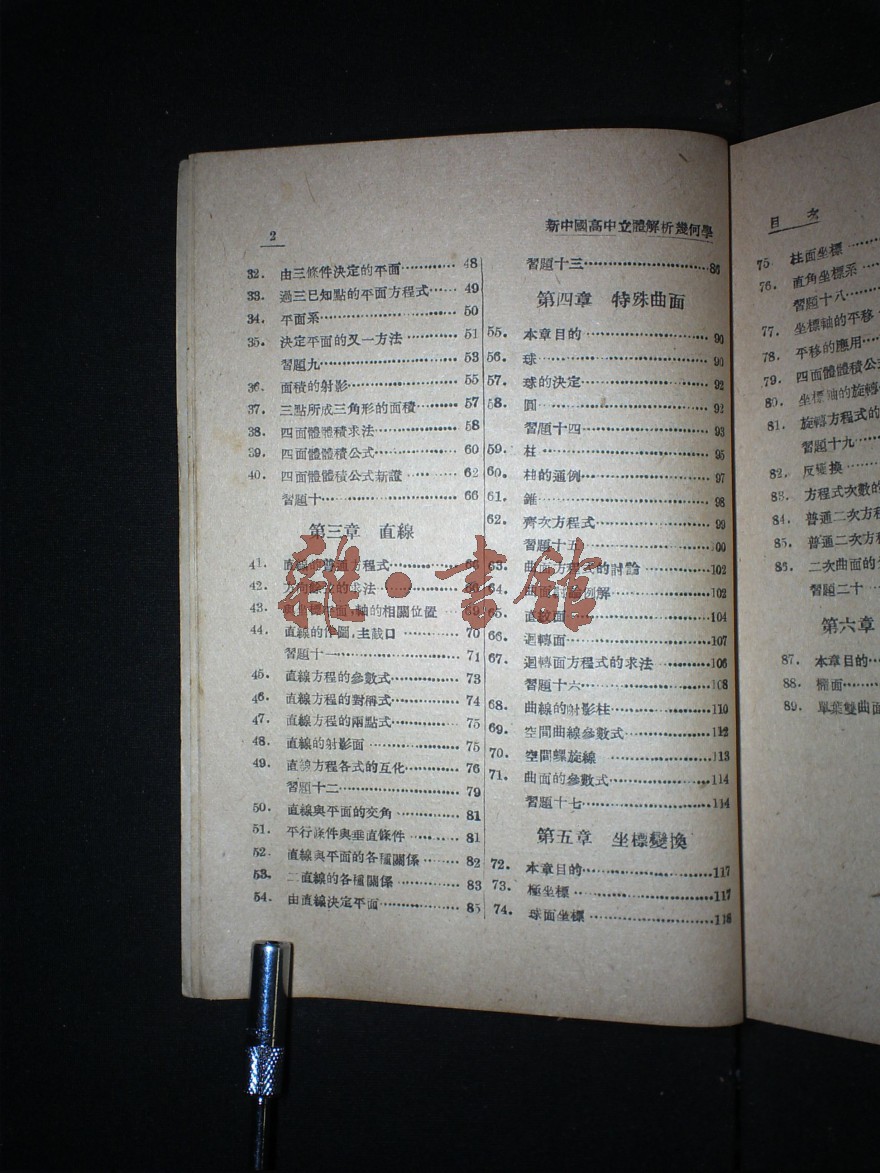 2
新中國高中立體解析幾何學
32. 由三條件決定的平面………… 48
33. 過三已知點的平面方程式…… 49
34. 平面系………… 50
35. 決定平面的又一方法………… 51
習題九………… 53
36. 面積的射影………… 55
37. 三點所成三角形的面積……… 57
38. 四面體體積求法………… 58
39. 四面體體積公式………… 60
40. 四面體體積公式新證………… 62
習題十………… 66
第三章 直線
41. 直線的普通方程式………… 66
42. 方向餘弦的求法…………
43. 坐標面,軸的相關位置
44. 直線的作圖,主截口………… 70
習題十一………… 71
45. 直線方程的參數式………… 73
46. 直線方程的對稱式………… 74
47. 直線方程的兩點式………… 75
48. 直線的射影面………… 75
49. 直線方程各式的互化………… 76
習題十二………… 79
50. 直線與平面的交角………… 81
51. 平行條件與垂直條件………… 81
52. 直線與平面的各種關係……… 82
53. 二直線的各種關係………… 83
54. 由直線決定平面………… 85
習題十三………… 86
第四章 特殊曲面
55. 本章目的………… 90
56. 球………… 90
57. 球的決定………… 92
58. 圓………… 92
習題十四………… 93
59. 柱………… 95
60. 柱的通例………… 97
61. 錐………… 98
62. 齊次方程式………… 99
習題十五…………100
63. 曲面方程式的討論…………102
64. 曲面討論例解…………102
65. 直紋面…………104
66. 迴轉面…………107
67. 迴轉面方程式的求法…………106
習題十六…………108
68. 曲線的射影柱…………110
69. 空間曲線參數式…………112
70. 空間螺旋線…………113
71. 曲面的參數式…………114
習題十七…………114
第五章 坐標變換
72. 本章目的…………117
73. 極坐標…………117
74. 球面坐標…………118
目 次
75 柱面坐標…………
76. 直角坐標系…………
習題十八…………
77. 坐標軸的平移
78. 平移的應用…………
79. 四面體體積公式
80. 坐標軸的旋轉
81. 旋轉方程式的
習題十九…………
82. 反變換…………
83. 方程式次數的
84. 普通二次方程
85. 普通二次方
86. 二次曲面的
習題二十
第六章
87. 本章目的…………
88. 橢面…………
89. 單葉雙曲面
雜·書館